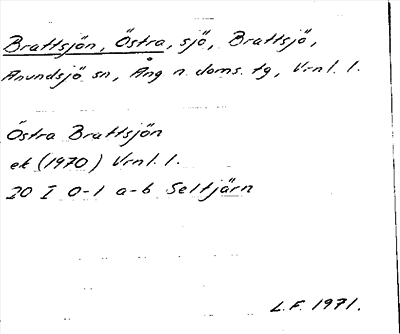 Brattsjön, Östra, sjö, Brattsjö,
Anundsjö sn, Ång n. doms. tg, Vrnl. l.
Östra Brattsjön
ek (1970) Vrnl. l.
20 I 0-1 a-b Seltjärn
L.F. 1971.